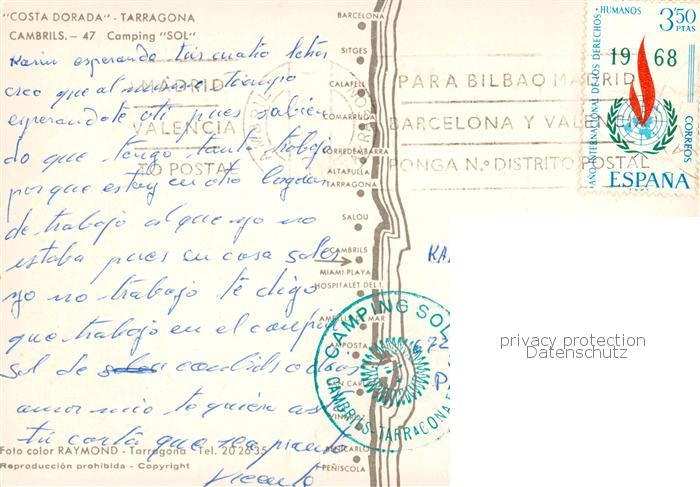 "COSTA DORADA" - TARRAGONA
CAMBRILS. - 47 Camping "SOL"
Karin esperando tus cuatro letras
creo que al mismo tiempo
esperandote a ti pues sabien
do que tengo tanto trabajo
porque estoy en otro lugar
de trabajo al que yo no
estaba pues en casa
yo no trabajo te digo
que trabajo en el camping
sol de cambrils
amor mio te quiero
tu carta que sea pronto
Vicente
Foto color RAYMOND - Tarragona Tel. 20 26 35
Reproducción prohibida - Copyright
BARCELONA
SITGES
CALAFELL
COMARRUGA
TORREDEMBARRA
ALTAFULLA
TARRAGONA
SALOU
CAMBRILS
MIAMI PLAYA
HOSPITALET DEL I.
AMETLLA MAR
AMPOSTA
SAN CARLOS
VINAROZ
BENICARLO
PEÑISCOLA
MADRID
VALENCIA
TO POSTAL
PARA BILBAO MADRID
BARCELONA Y VALEN
PONGA N.º DISTRITO POSTAL
AÑO INTERNACIONAL DE LOS DERECHOS HUMANOS
3'50
PTAS
1968
CORREOS
ESPAÑA
KA
672
CAMPING SOL
CAMBRILS-TARRAGONA
privacy protection
Datenschutz